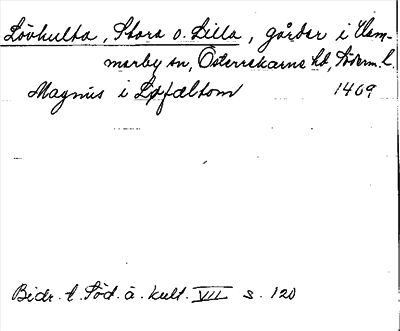 Lövhulta, Stora o. Lilla, gårdar i Vam-
merby sn, Österrekarne hd, Söderm. l.
Magnus i Løfæltom 1409
Bidr. t. Söd. ä. kult. VII s. 120